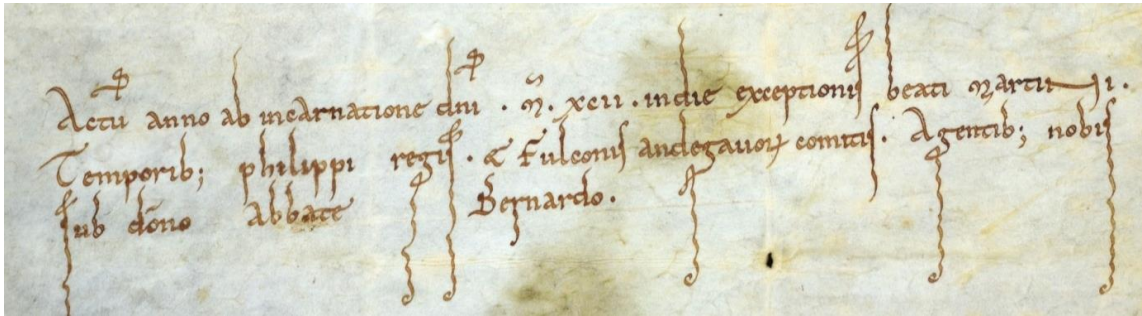 Actū anno ab incarnatione dn̄i . M̄ . xcii . in die exceptionis beati Martini .
Temporib; philippi regis . & Fulconis andegauoꝝ comitis . Agentib; nobis
sub dōno Abbate Bernardo .